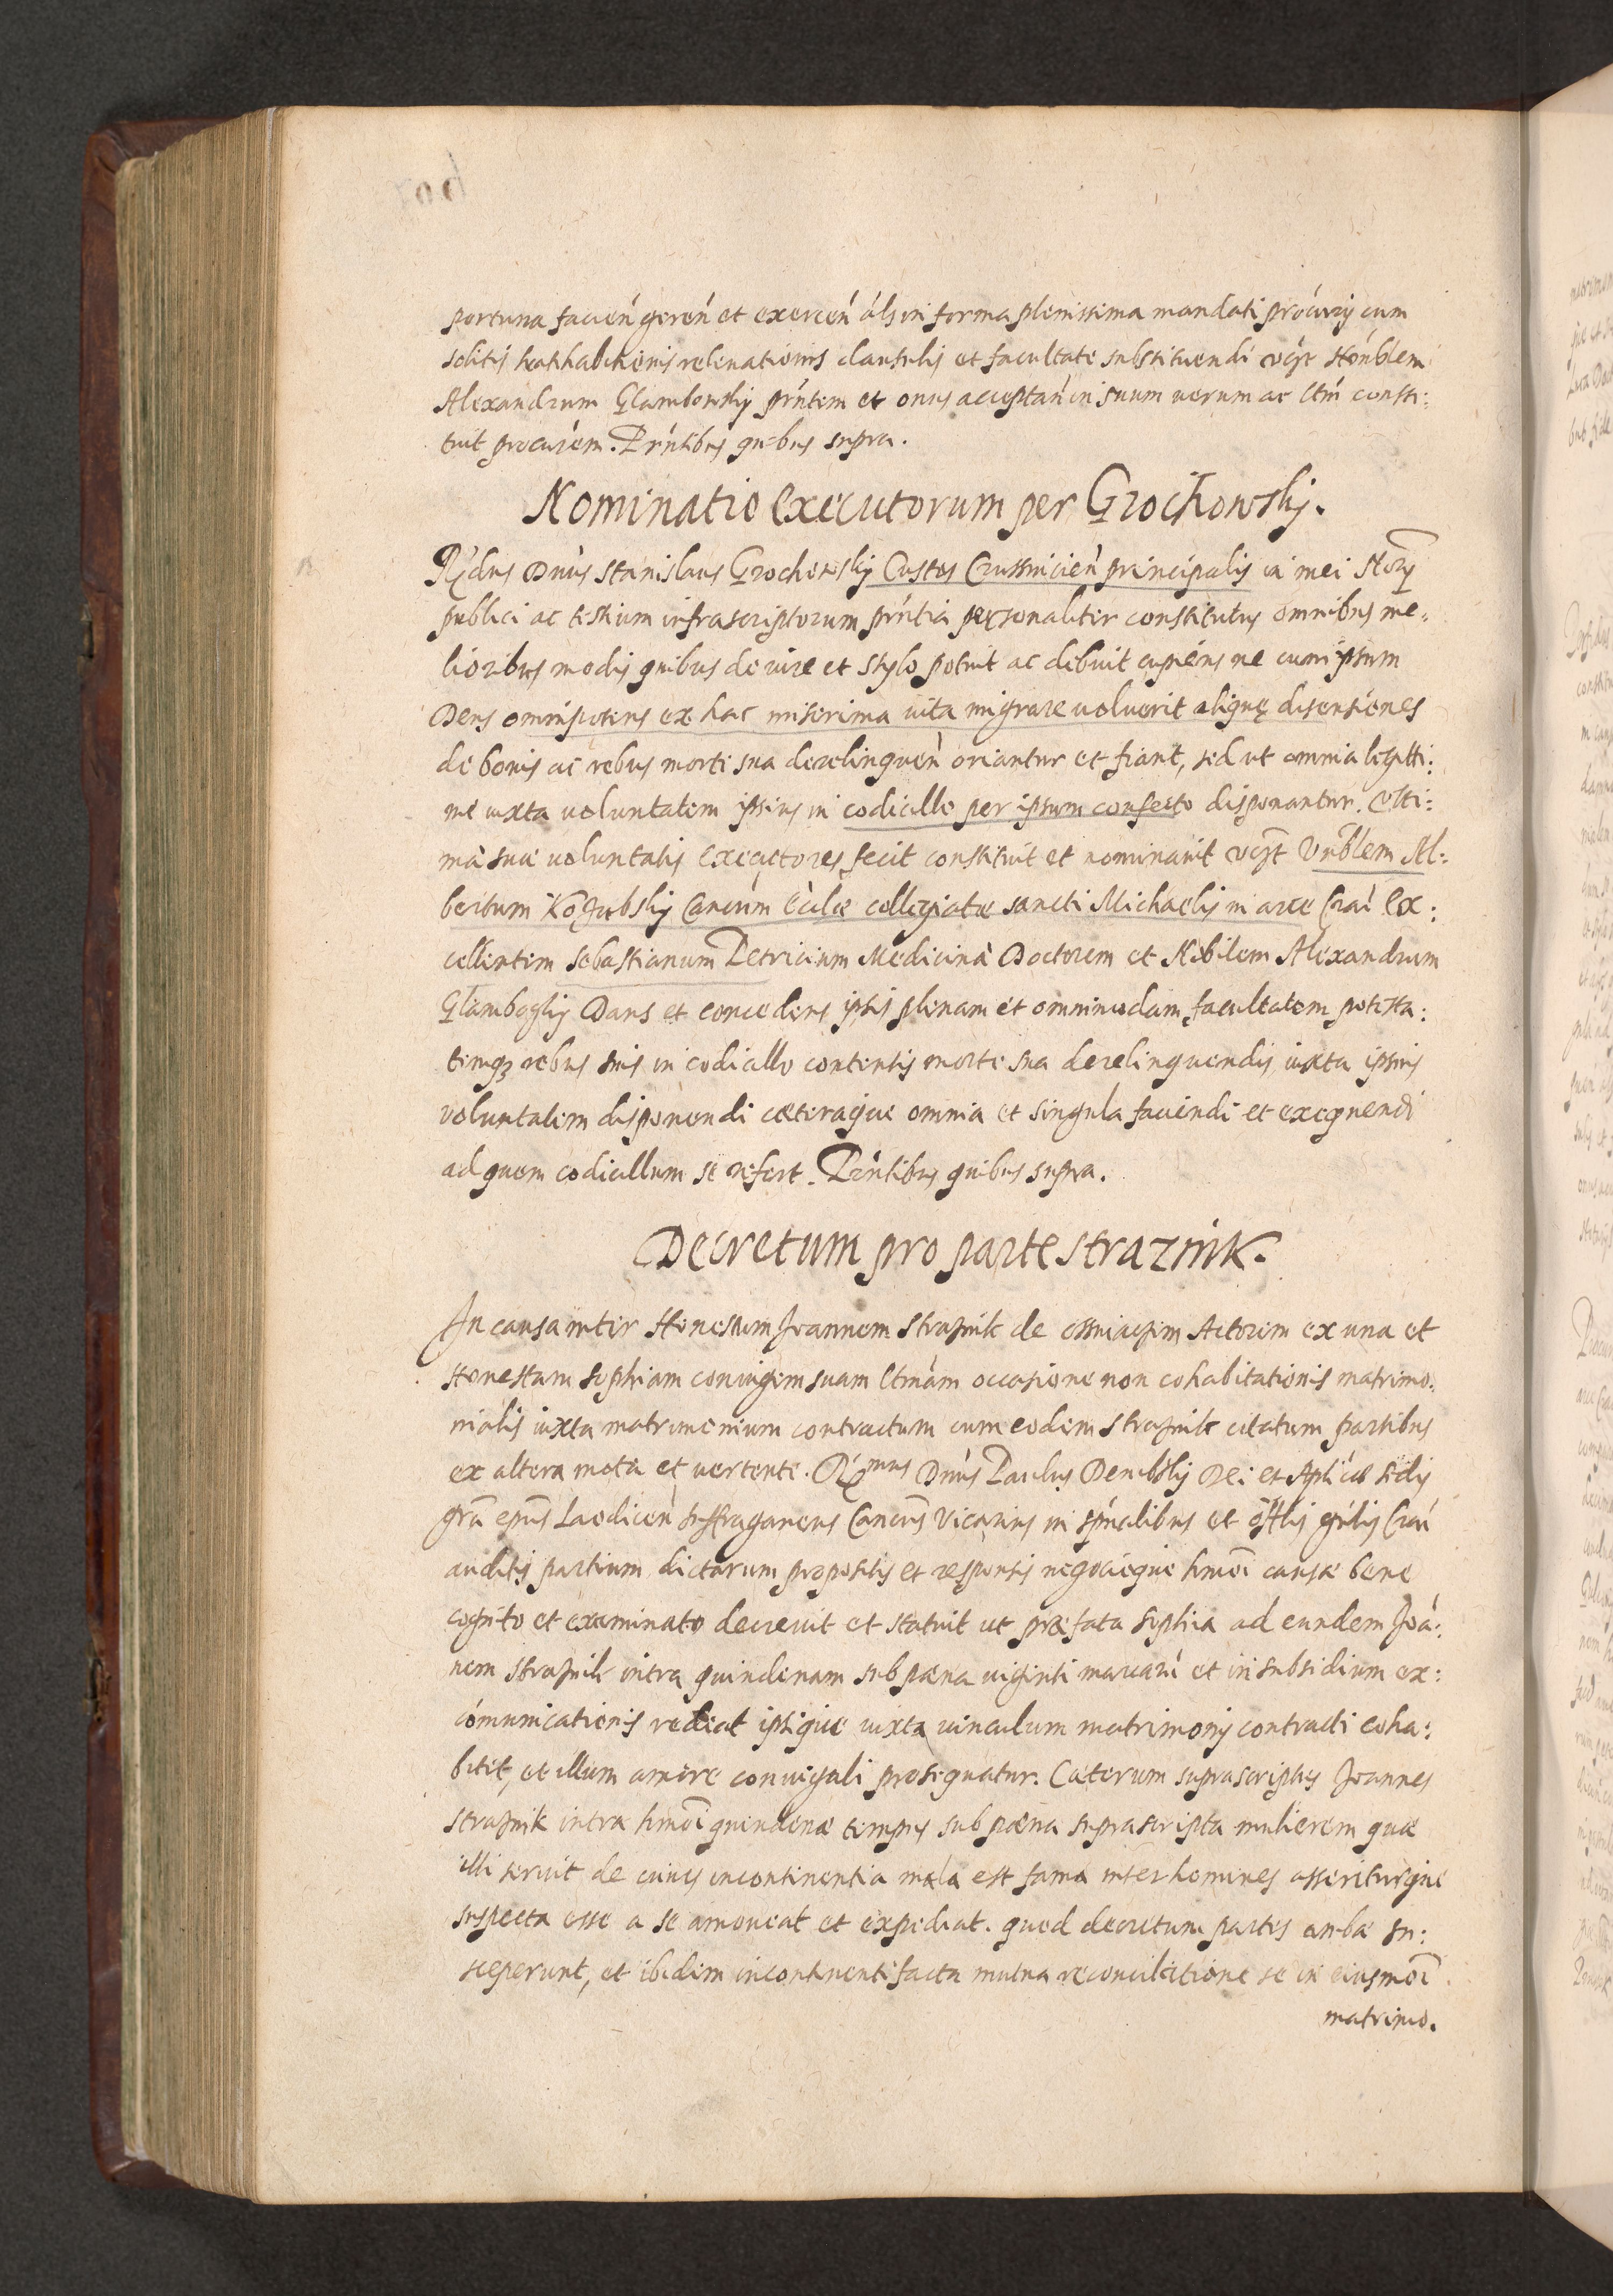 portuna facień gereń et exerceń als in forma plenissima mandati procurrij cum
solitis rathabitionis relevationis clausulis et facultate substituendi vdzt Honblem
Alexandrum Głambowskij pñtem et onus acceptań in suum verum ac ltmũ consti:
tuit procurem. Pñtibus quibus supra.
Nominatio Executorum per Grochowskj.
Rñdus Dnũs Stanislaus Grochowskij Custos Crussvicieñ principalis in mei Norij
publici ac testium infrascriptorum pñtia personaliter constitutus omnibus me:
lioribus modis quibus de iure et stylo potuit ac debuit cupiens ne cum ipsum
Deus omnipotens ex hac miserima vita migrare voluerit aliquę disensiones
de bonis ac rebus morte sua derelinqueñ oriantur et fiant, sed ut omnia legitti:
me iuxta voluntatem ipsius in codicillo per ipsum confecto disponantur. Ulti:
mã suæ voluntatis executores fecit constituit et nominavit vdzt Vnblem Al:
bertum Kozubskij Canćum Ecclæ collegiatæ sancti Michaelis in arce Crac̃ Ex:
cellentem Sebastianum Petricium Medicinæ Doctorem et Nobilem Alexandrum
Głamboczkij Dans et concedens ipsis plenam et omnimodam facultatem potesta:
temq3 rebus suis in codicillo contentis morte sua derelinquendis iuxta ipsius
voluntatem disponendi cæteraque omnia et singula faciendi et exequendi
ad quem codicillum se refert. Pñtibus quibus supra.
Decretum pro parte Straznik.
In causa inter Honestum Joannem Straznik de Actorem ex una et
Honestam Sophiam coniugem suam ltmam occasione non cohabitationis matrimo:
nialis iuxta matrimonium contractum cum eodem Straznik citatum partibus
ex altera mota et vertente. Rmus Dnũs Paulus Dembskij Dei et Aplicæ sedis
grã epũs Laodiceñ Suffraganeus Cancũs Vicarius in spũalibus et offtlis gñlis Crac̃
auditis partium dictarum propositis et responsis negocioque hmõi causæ bene
cognito et examinato decrevit et statuit ut præfata Sophia ad eundem Joã:
nem Straznik intra quindenam sub pœna viginti marcarũ et in subsidium ex:
cõmunicationis redeat ipsique iuxta vinculum matrimonij contracti coha:
bitet, et illum amore coniugali prosequatur. Cæterum suprascriptus Joannes
Straznik intra hmõi quindenæ tempus sub pœna suprascripta mulierem quæ
illi servit de cuius incontinentia mala est fama inter homines asseriturque
suspecta esse a se amoveat et expediat. quod decretum partes ambæ su:
sceperunt, et ibidem incontinenti facta mutua reconciliatione se in eiusmõi
matrimo.